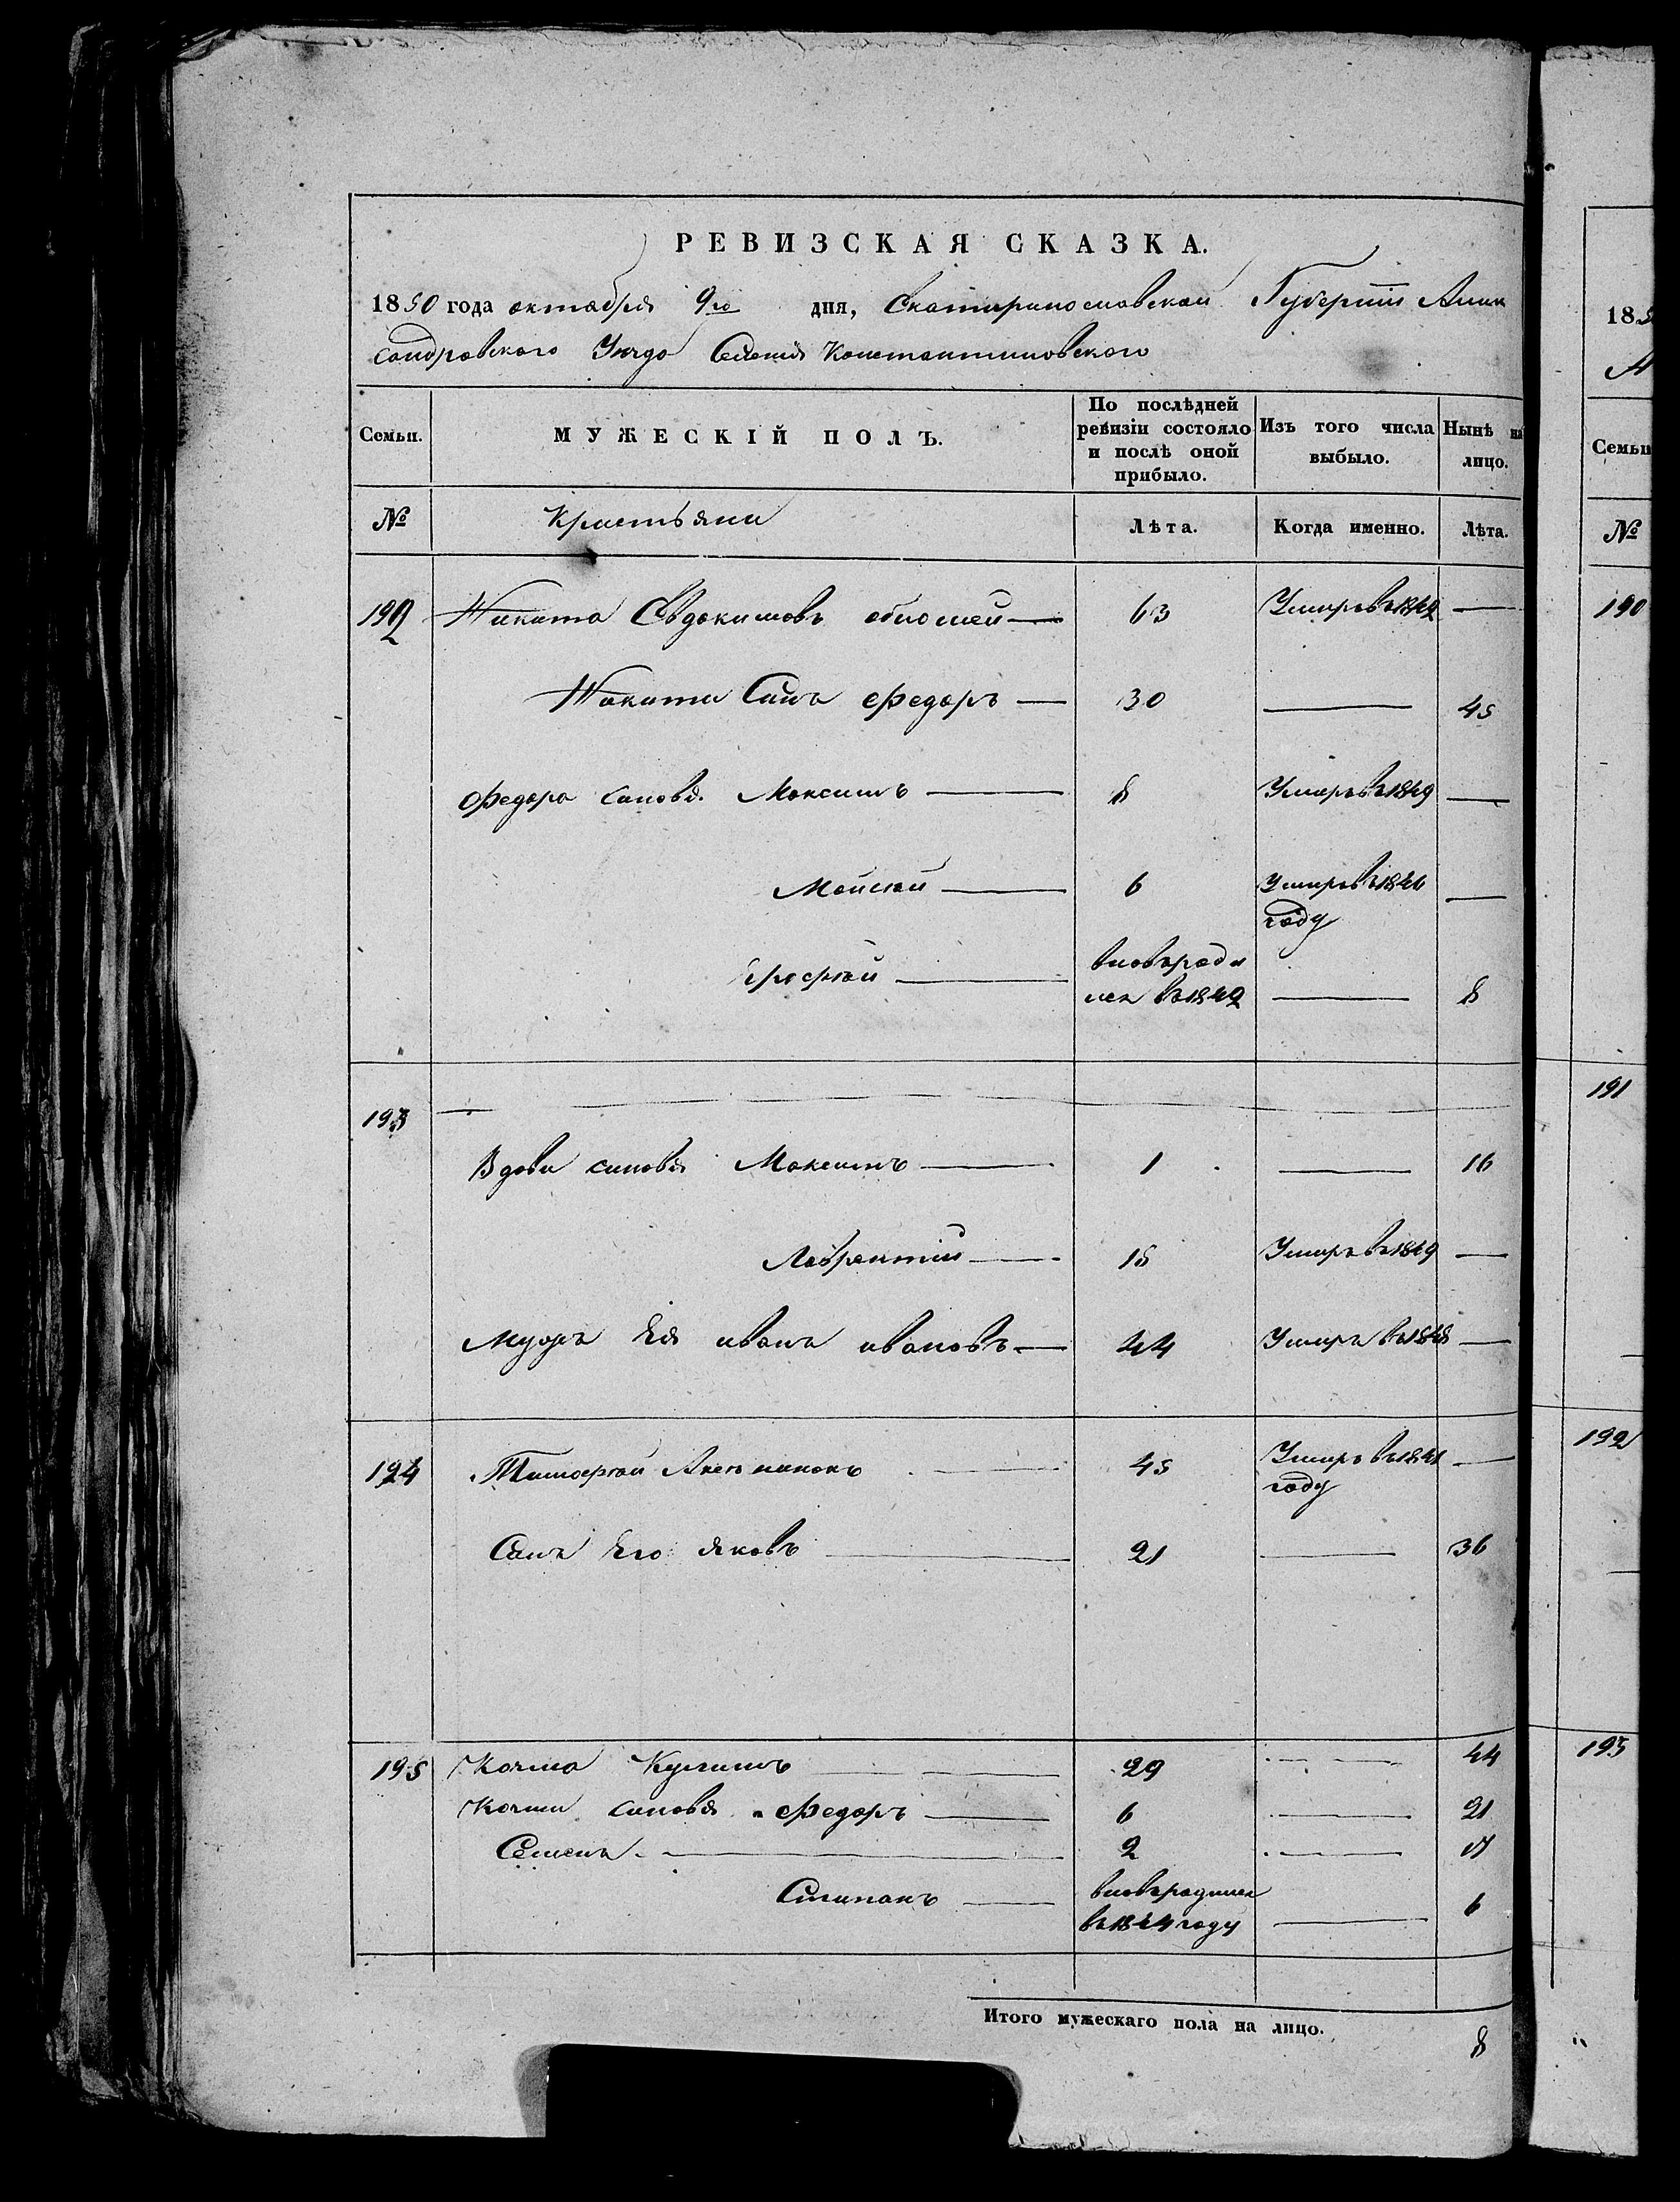 РЕВИЗСКАЯ СКАЗКА.
1850 года октября 9го дня, Екатеринославской Губернии Алек
сандровского Уезда Селения Константиновского
Семьи. МУЖЕСКІЙ ПОЛЪ. По послѣдней ревизіи состояло и послѣ оной прибыло. Изъ того числа выбыло. Нынѣ на лицо.
№ Крестьяни Лѣта. Когда именно. Лѣта.
192 Никита Евдокимовъ 63 Умеръ въ 1849 —
Никити Синъ Федоръ — 30 — 45
Федора синовя Максимъ — 8 Умеръ въ 1849 —
Мойсей — 6 Умеръ въ 1841 году —
Ерофей — вновь роди лся въ 1842 — 8
193
Вдови синовя Максимъ — 1 — 16
Лаврентий — 15 Умеръ въ 1849 —
Мужъ Ея иванъ ивановъ — 44 Умеръ въ 1848 —
194 Тимофей — 45 Умеръ въ 1841 году —
Синъ Его яковъ — 21 — 36
195 Козма — 29 — 44
Козми синовя Федоръ — 6 — 21
Семенъ — 2 — 17
Степанъ — вновь родился въ 1844 году — 6
Итого мужескаго пола на лицо. 8
185
Семьи
№
190
191
192
193